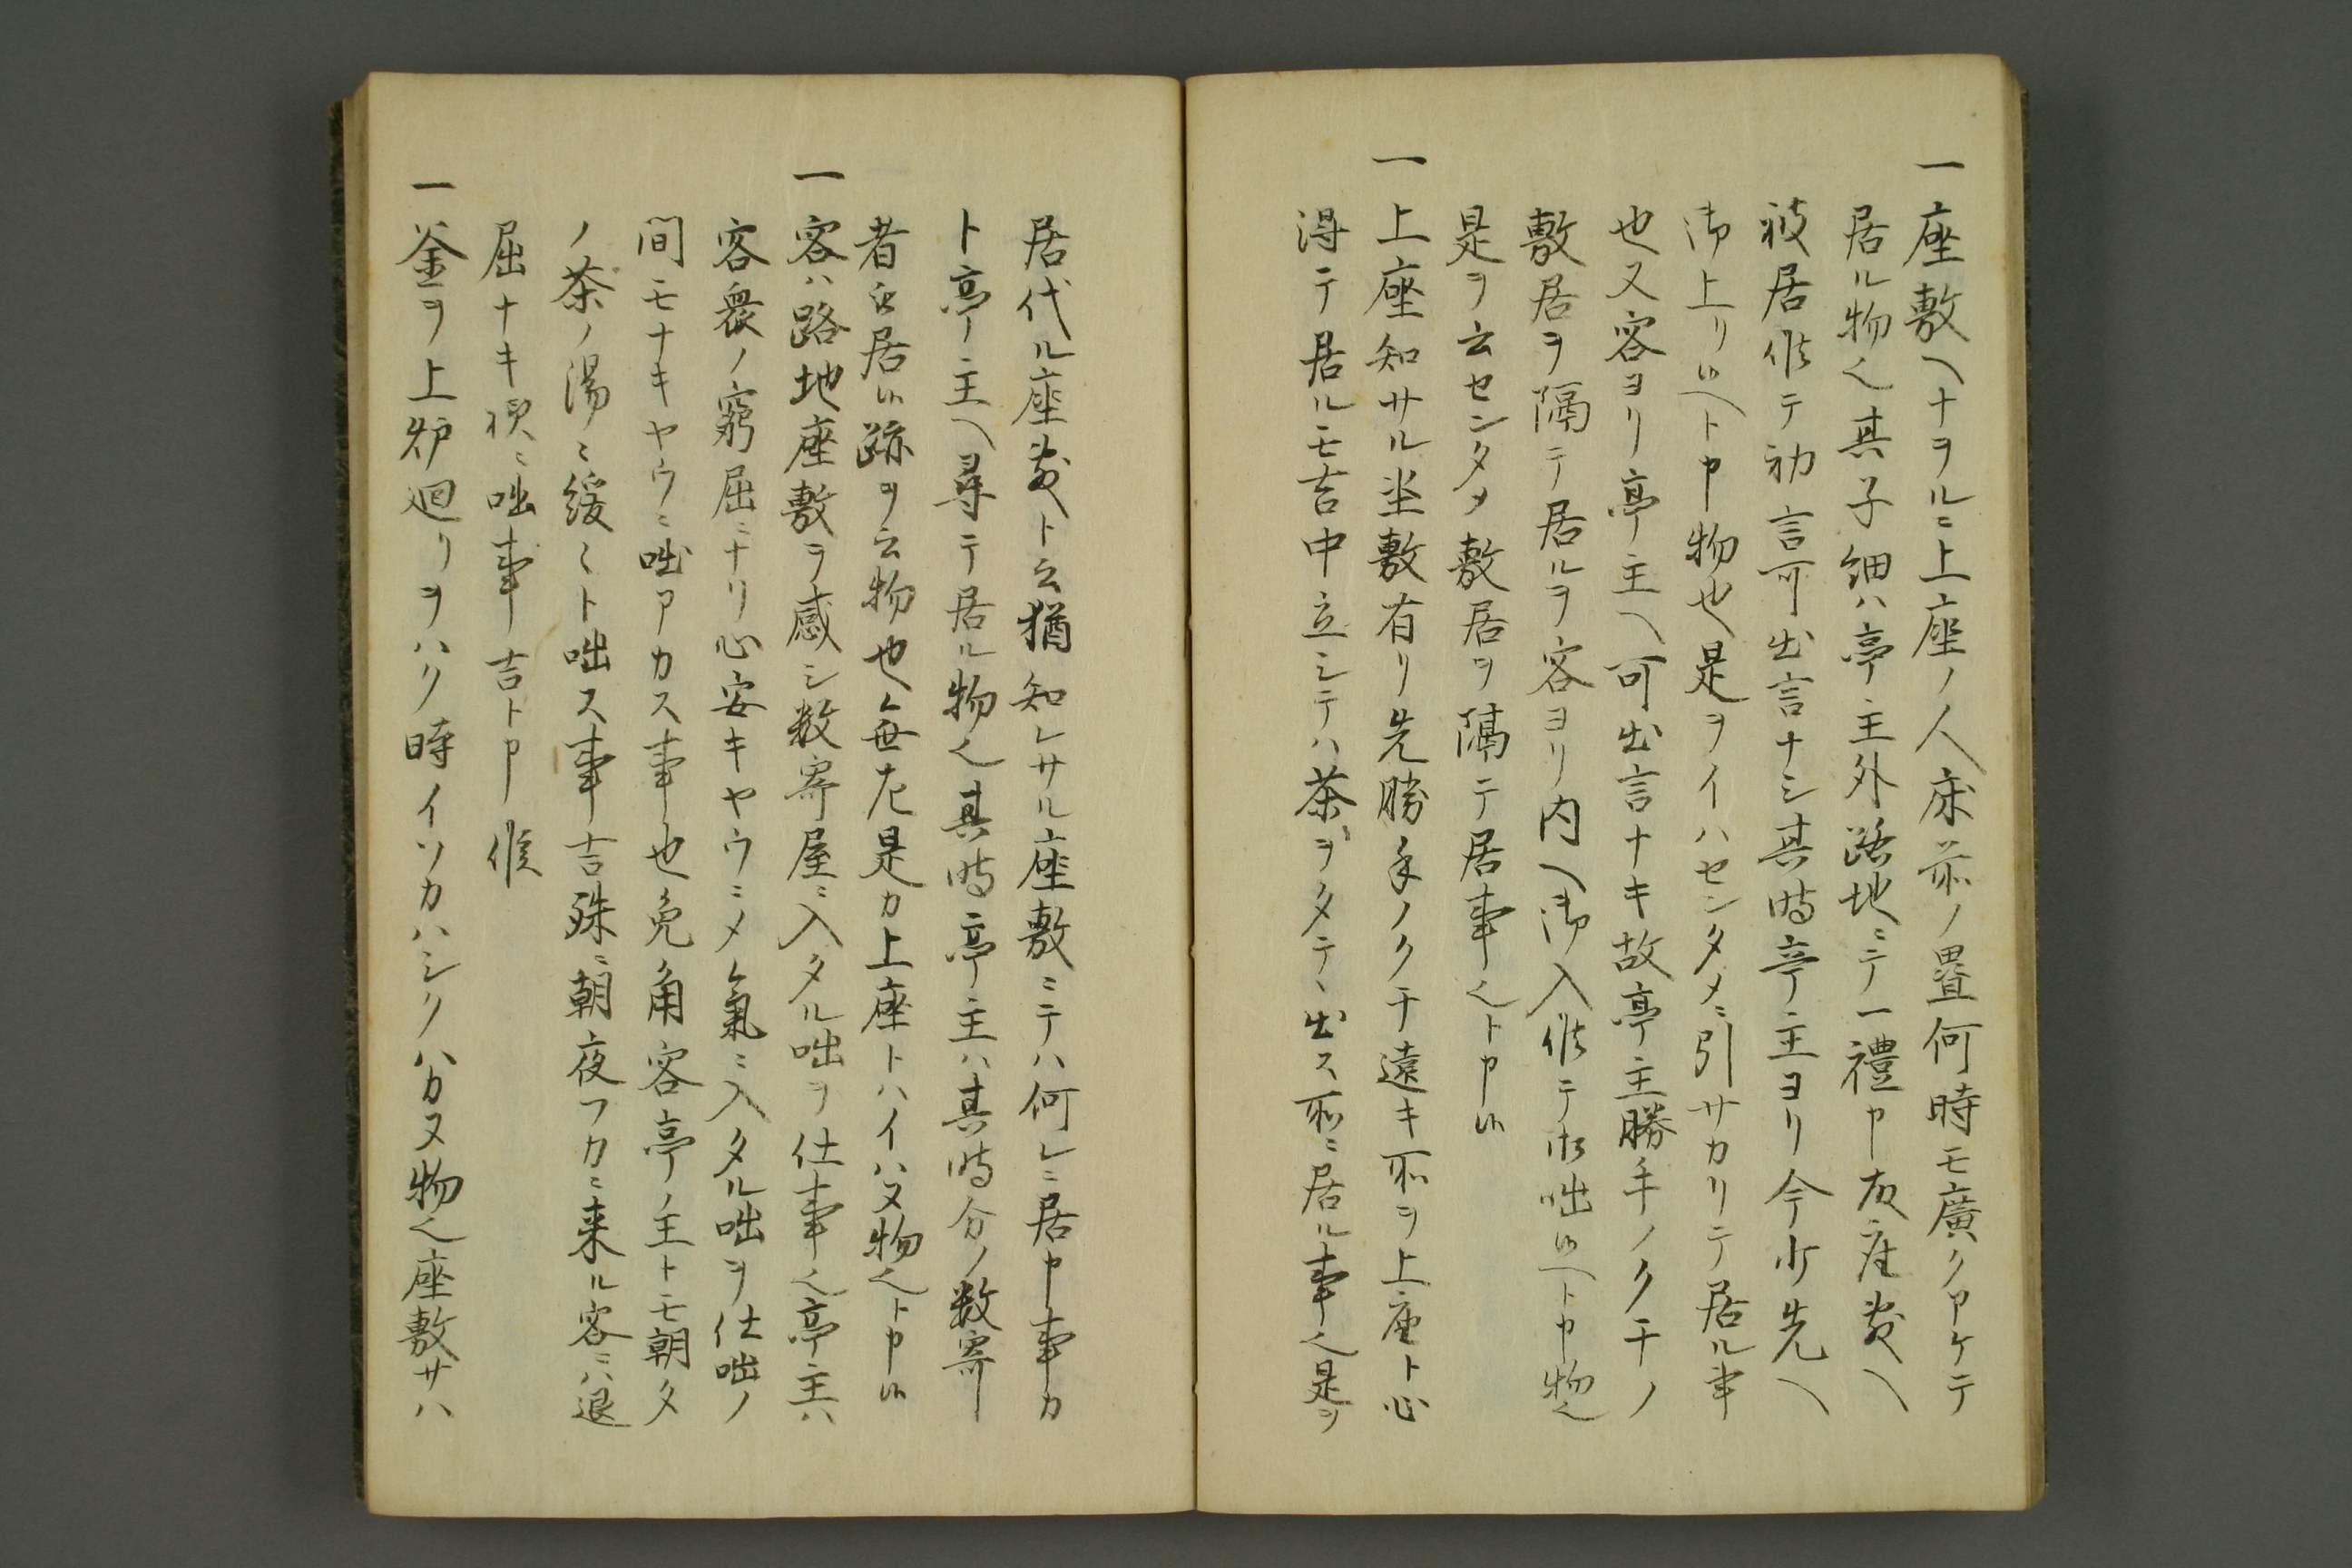 一座敷ヘナヲルニ上座ノ人床前ノ畳何時モ廣クアケテ
居ル物也其子細ハ亭主外路地ニテ一禮申故座敷ヘ
被居候テ初言可出言ナシ其時亭主ヨリ今少先ヘ
御上リ候ヘト申物也是ヲイハセンタメニ引サカリテ居ル事
也又客ヨリ亭主ヘ可出言ナキ故亭主勝手ノクチノ
敷居ヲ隔テ居ルヲ客ヨリ内ヘ御入候テ御咄候ヘト申物也
是ヲ云センタメ敷居ヲ隔テ居事也ト申候
一上座知サル坐敷有リ先勝手ノクチ遠キ所ヲ上座ト心
得テ居ルモ吉中立シテハ茶ヲタテヽ出ス所ニ居ル事也是ヲ
居代ル座敷ト云猶知レサル座敷ニテハ何レニ居申事カ
ト亭主ヘ尋テ居ル物也其時亭主ハ其時分ノ数寄
者ノ居候跡ヲ云物也無左是カ上座トハイハヌ物也ト申候
一客ハ路地座敷ヲ感シ数寄屋ニ入タル咄ヲ仕事也亭主ハ
客衆ノ窮屈ニナリ心安キヤウニメ氣ニ入タル咄ヲ仕咄ノ
間モナキヤウニ咄アカス事也兎角客亭ノ主トモ朝夕
ノ茶ノ湯ニ緩〱ト咄ス事吉殊ニ朝夜フカニ来ル客ニハ退
屈ナキ様ニ咄事吉ト申候
一釜ヲ上炉廻リヲハク時イソカハシクハカヌ物也座敷サハ